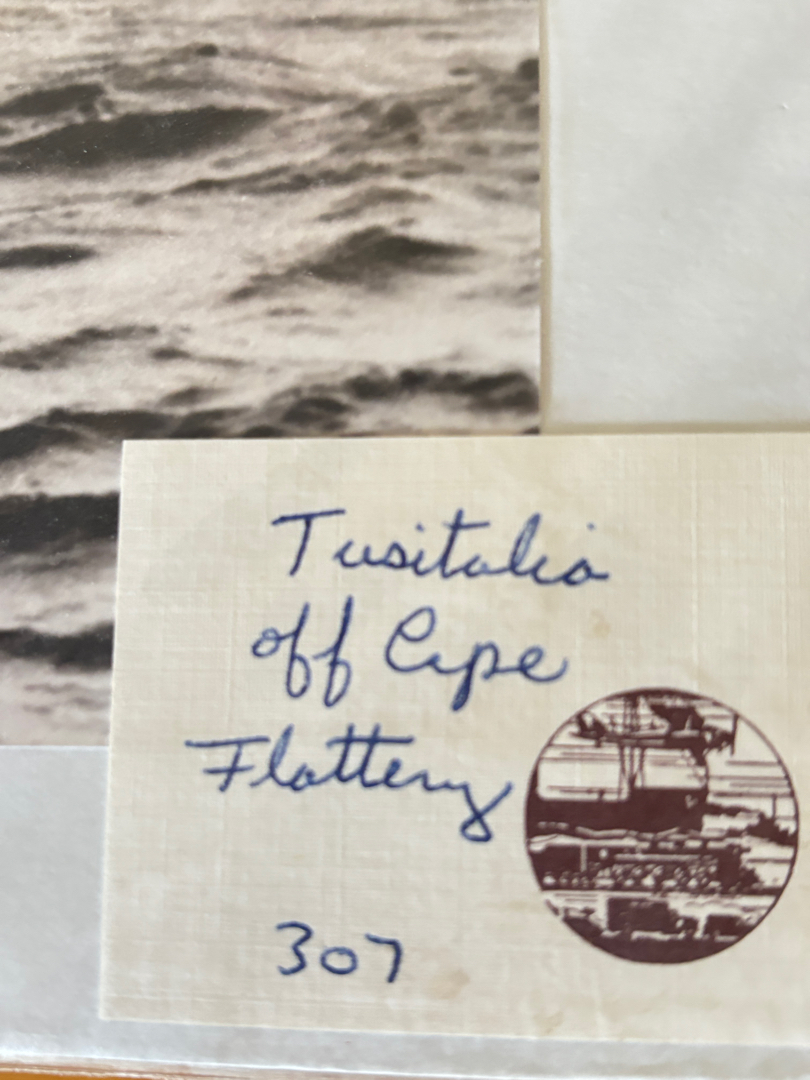 Tusitalia
off Cape
Flattery
307